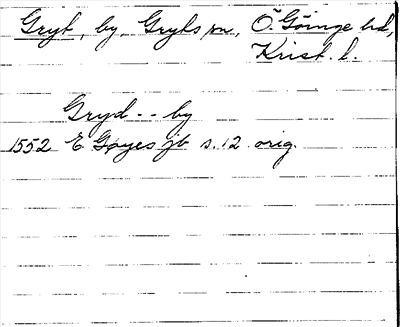 Gryt, by, Gryts sn, Ö. Göinge hd,
Krist. l.
Gryd - - by
1552 E Gøyes jb s. 12 orig.